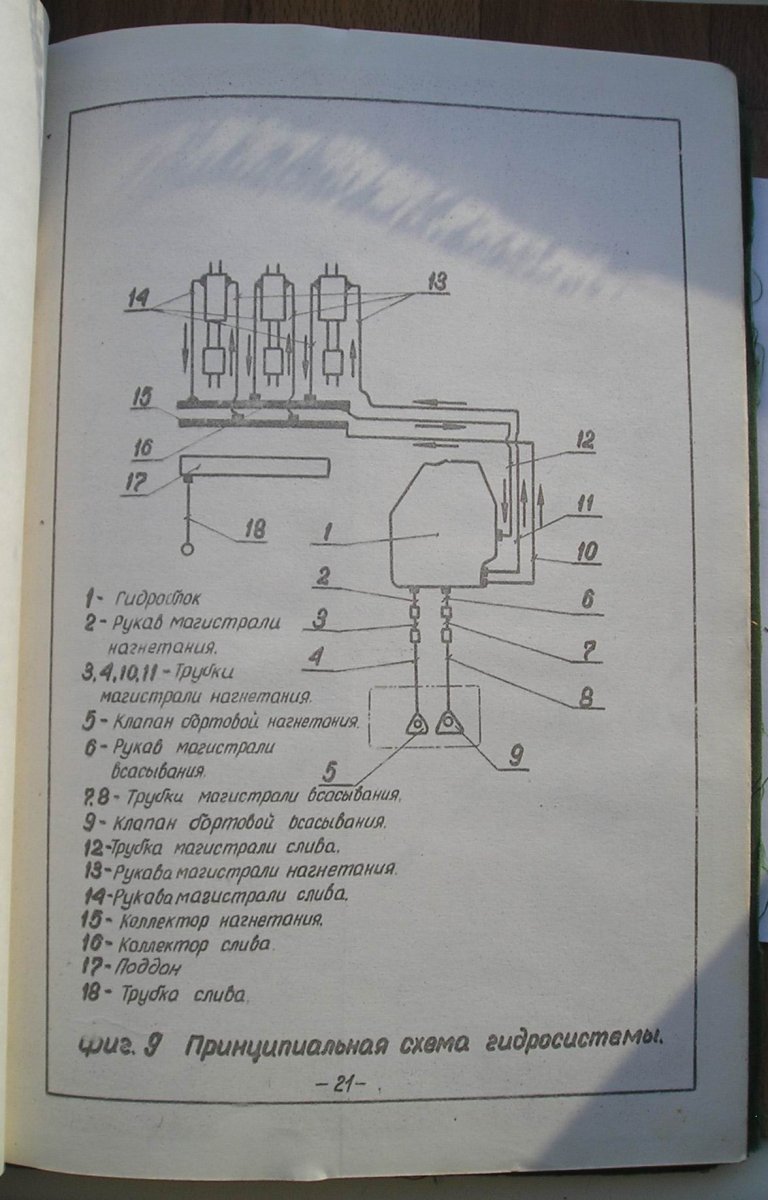 14
13
15
16
17
18
1
12
11
10
2
6
3
7
4
8
5
9
1- Гидроблок
2- Рукав магистрали
нагнетания.
3,4,10,11- Трубки
магистрали нагнетания.
5- Клапан бортовой нагнетания.
6- Рукав магистрали
всасывания.
7,8- Трубки магистрали всасывания.
9- Клапан бортовой всасывания.
12-Трубка магистрали слива.
13-Рукава магистрали нагнетания.
14-Рукава магистрали слива.
15- Коллектор нагнетания.
16- Коллектор слива.
17- Поддон
18- Трубка слива.
Фиг. 9 Принципиальная схема гидросистемы.
-21-